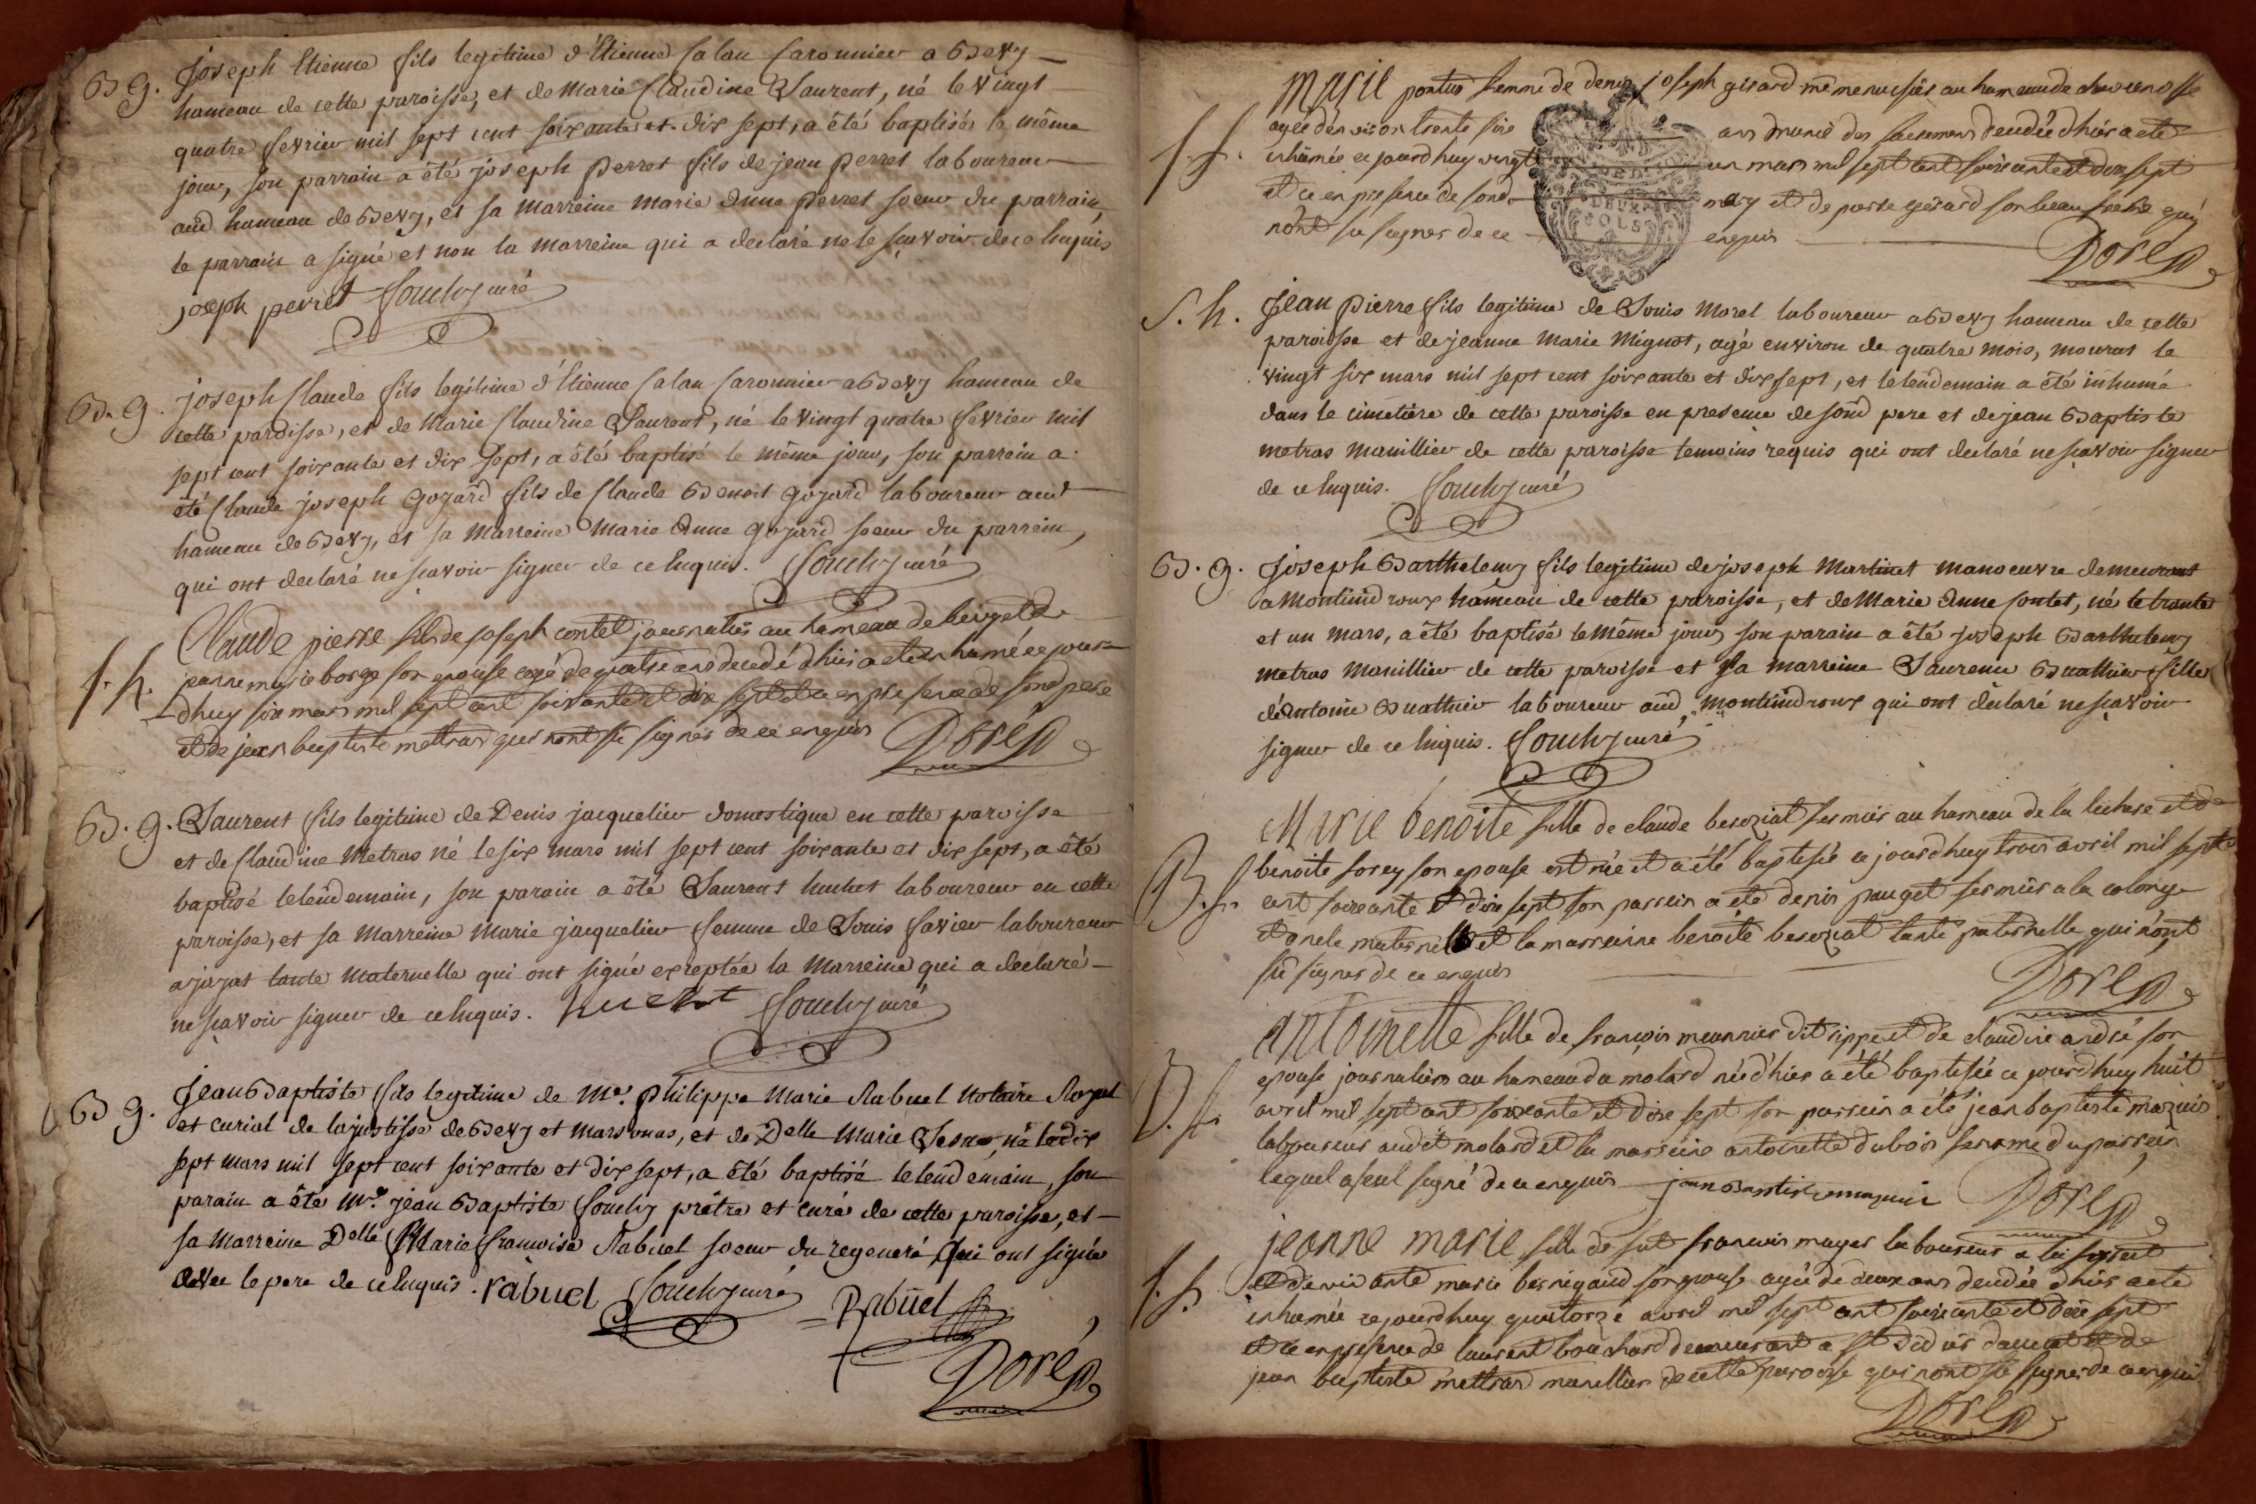 B g. Joseph Etienne fils legitime d'Etienne Calan Caronnier a Bevy
hameau de cette paroisse, et de Marie Claudine Laurent, né le vingt
quatre fevrier mil sept cent soixante et dix sept, a êté baptisé le même
jour, son parrain a êté joseph perret fils de jean perret laboureur
aud hameau de Bevy, et sa marreine marie anne perret soeur du parrain,
le parrain a signé et non la marreine qui a declaré ne le sçavoir de ce Enquis
joseph perret Couchy curé
B. g. joseph Claude fils legitime d'Etienne Calan Caronnier a Bevy hameau de
cette paroisse, et de Marie Claudine Laurent, né le vingt quatre fevrier mil
sept cent soixante et dix sept, a êté baptisé le même jour, son parrain a
êté Claude joseph gojard fils de Claude Benoit gojard laboureur aud
hameau de Bevy, et sa marreine Marie anne gojard soeur du parrein,
qui ont declaré ne sçavoir signer de ce Enquis. Couchy curé
Claude pierre fils de joseph contet journalier au hameau de
f. h. janne marie borge son epouse agé de quatre ans decedé d'hier a eté inhumé ce jour
dhuy six mars mil sept cent soixante et dix sept et ce en presence de sond pere
et de jean baptiste mettras qui nont sçu signer de ce enquis Doré
B. g. Laurent fils legitime de Denis jacquelier domestique en cette paroisse
et de Claudine Metras né le six mars mil sept cent soixante et dix sept, a êté
baptisé le lendemain, son parain a êté Laurent huchet laboureur en cette
paroisse, et sa marreine marie jacquelier femme de Louis favier laboureur
a jayat tante maternelle qui ont signé exceptée la marreine qui a declaré
ne sçavoir signer de ce Enquis. huchet Couchy curé
B g. Jean Baptiste fils legitime de Me. philippe Marie Rabuel Notaire Royal
et curial de la justisse de Bevy et marsonas, et de Delle Marie né le dix
sept mars mil sept cent soixante et dix sept, a êté baptisé le lendemain, son
parain a êté Mre jean Baptiste Couchy prêtre et curé de cette paroisse, et
sa marreine Delle Marie francoise Rabuel soeur du regeneré qui ont signé
avec le pere de ce Enquis. rabuel Couchy curé Rabuel
Doré
Marie pontus femme de denis joseph girard menuisier au hameau de
agée d'environ trente six ans munie des sacremens decedée d'hier a eté
f. f. inhumée ce jourd huy vingt un mars mil sept cent soixante et dix sept
et ce en presence de sond mary et de pierre gerard son beau frere quy
n'ont su signer de ce enquis Doré
S. h. Jean pierre fils legitime de Louis Morel laboureur a Bevy hameau de cette
paroisse et de jeanne Marie Mignot, agé environ de quatre mois, mourut le
vingt six mars mil sept cent soixante et dix sept, et le lendemain a êté inhumé
dans le cimetière de cette paroisse en presence de sond pere et de jean Baptiste
metras manillier de cette paroisse temoins requis qui ont declaré ne sçavoir signer
de ce Enquis. Couchy curé
B. g. Joseph Barthelemy fils legitime de joseph Martinet manoeuvre demeurant
a Montindroux hameau de cette paroisse, et de Marie Anne contet, né le trante
et un mars, a êté baptisé le même jour, son parain a êté joseph Barthelemy
metras manillier de cette paroisse et sa marreine Laurence Buathier fille
d'Antoine Buathier laboureur aud montindroux qui ont declaré ne sçavoir
signer de ce Enquis. Couchy curé
Marie benoite fille de claude beroziat fermier au hameau de la et de
benoite forey son epouse est née et a été baptisée ce jourdhuy trois avril mil sept
B. f. cent soixante et dix sept son parrein a eté denis pauget fermier a la
et oncle maternelle et la marreinne benoite beroziat tante paternelle qui n'ont
su signer de ce enquis Doré
Antoinette fille de francois meunnier dit et de claudine andré son
epouse journaliers au hameau du molard née d'hier a été baptisée ce jourdhuy huit
B. f. avril mil sept cent soixante et dixe sept son parrein a été jean baptiste
laboureur audit molard et la marreine antoinette dubois femme du parrein
lequel a seul signé de ce enquis Doré
jeanne marie fille de fut francois mayer laboureur a la
f. f. et de vivante marie son epouse agée de deux ans decedée d'hier a eté
inhumée ce jourdhuy quatorze avril mil sept cent soixante et dixe sept
et ce en presence de laurent bouchard demeurant a st didier et de
jean baptiste mettras manillier de cette paroisse qui n'ont su signer de ce enquis
Doré